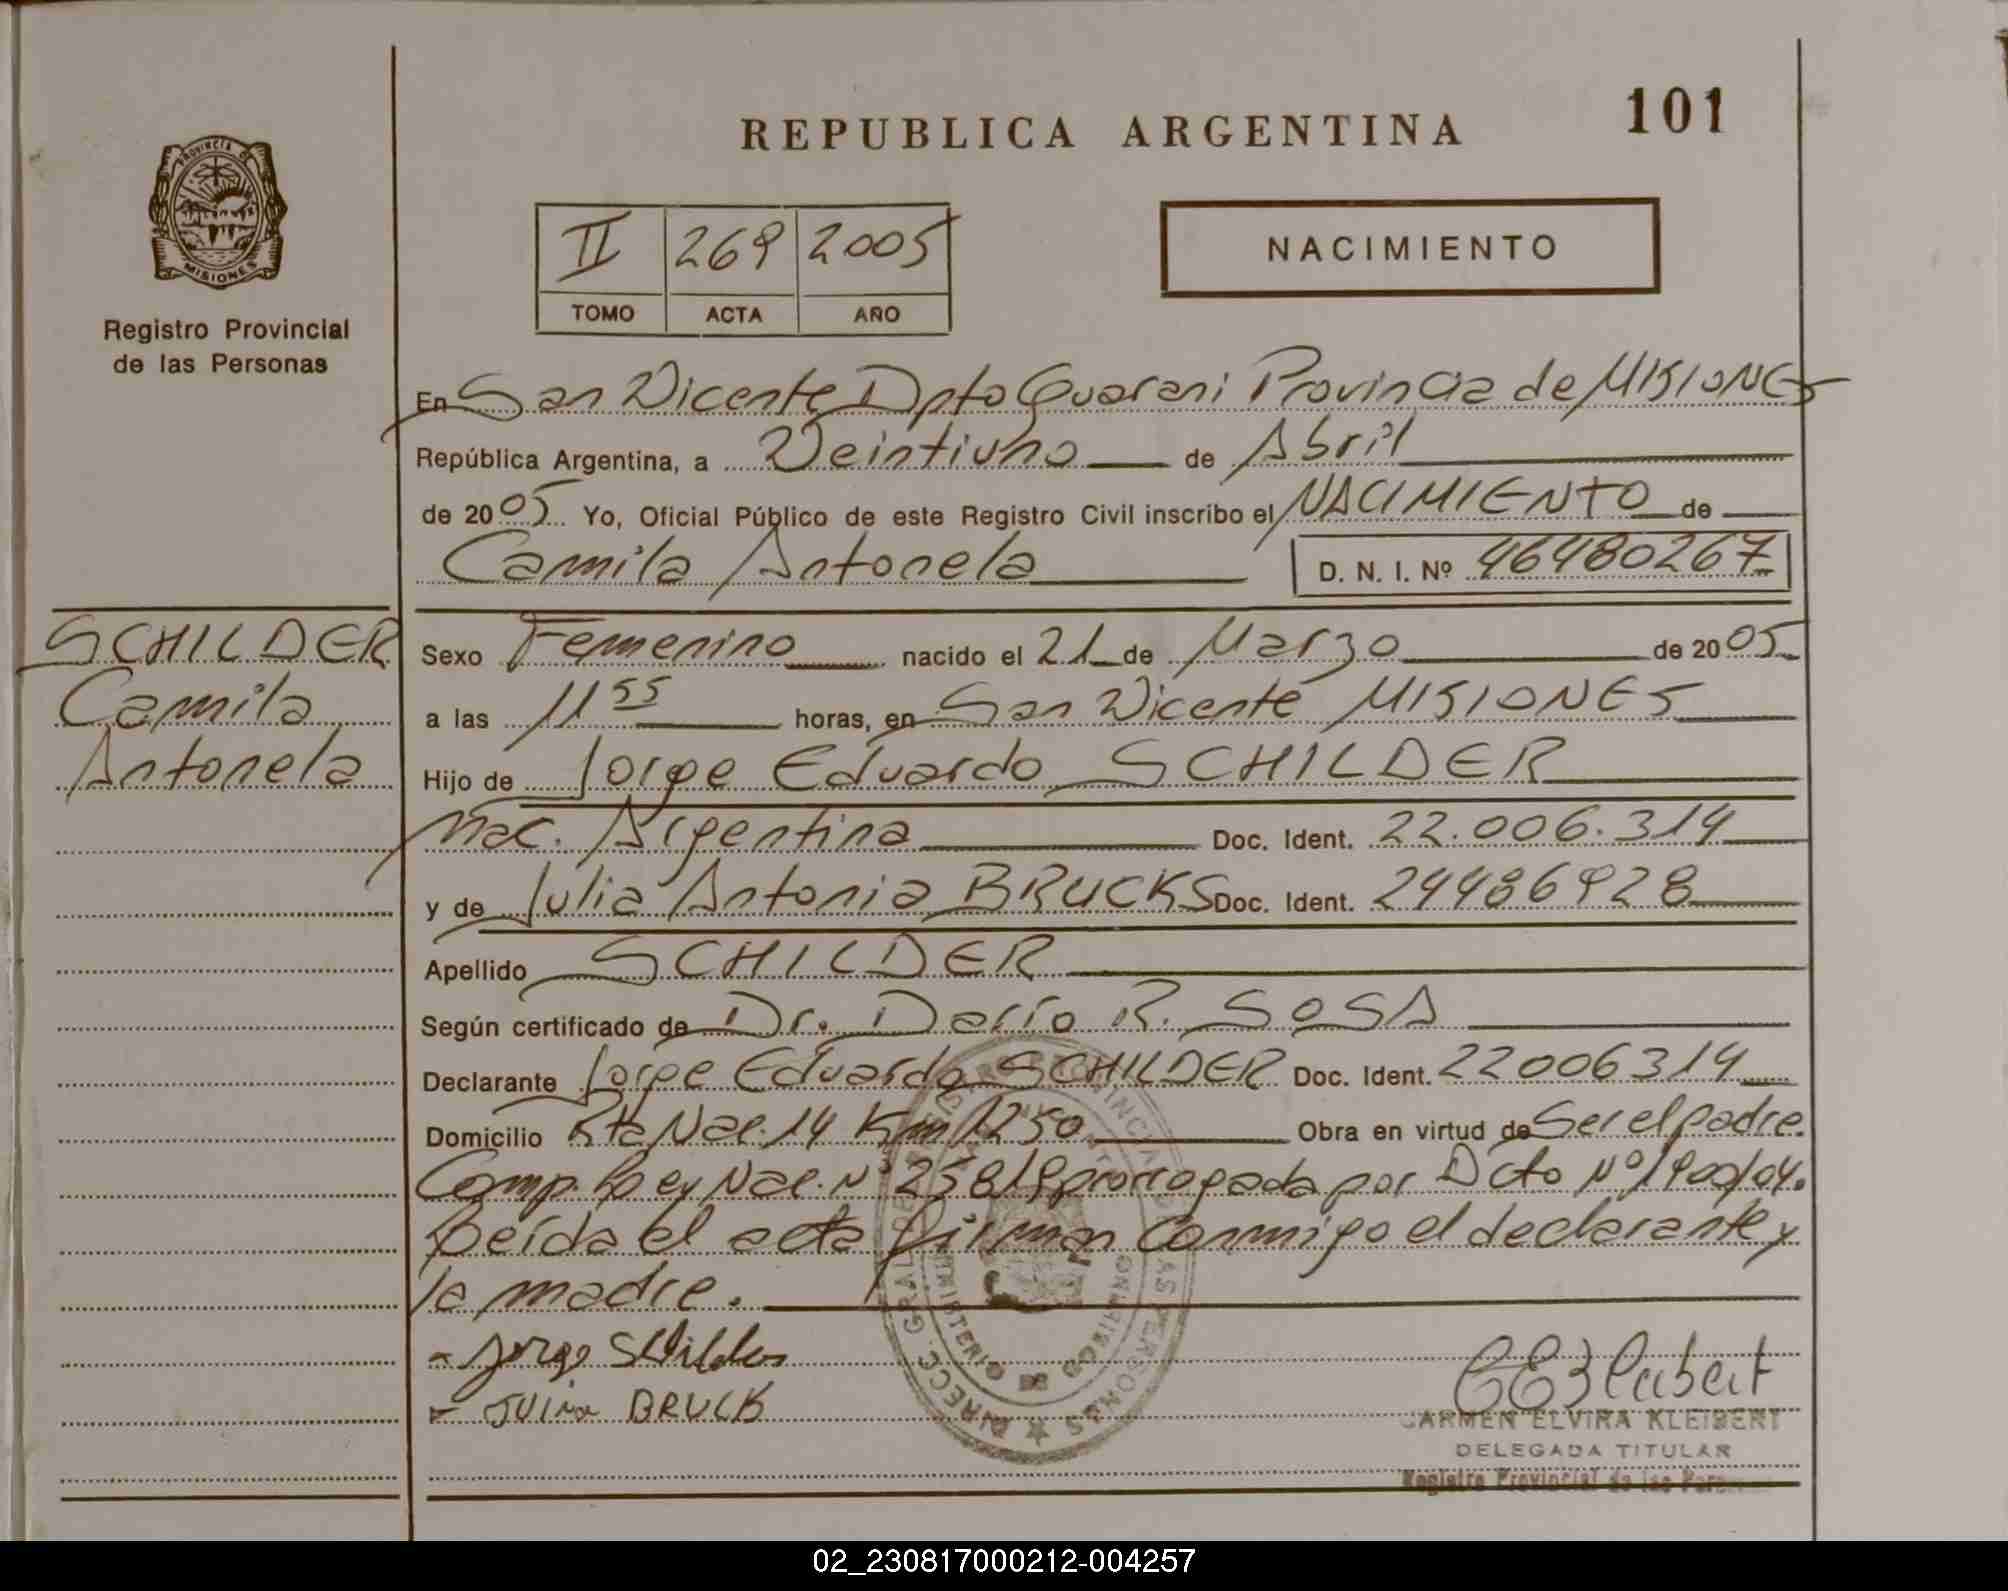 REPUBLICA ARGENTINA
101
PROVINCIA DE
MISIONES
Registro Provincial
de las Personas
II 269 2005
TOMO ACTA AÑO
NACIMIENTO
En San Vicente Dpto Guarani Provincia de MISIONES
República Argentina, a Veintiuno de Abril
de 2005 Yo, Oficial Público de este Registro Civil inscribo el NACIMIENTO de
Camila Antonela D. N. I. Nº 46480267
SCHILDER
Camila
Antonela
Sexo Femenino nacido el 21 de Marzo de 2005
a las 11 55 horas, en San Vicente MISIONES
Hijo de Jorge Eduardo SCHILDER
Nac. Argentina Doc. Ident. 22.006.314
y de Julia Antonia BRUCKS Doc. Ident. 24486928
Apellido SCHILDER
Según certificado de Dr. Darío R. SOSA
Declarante Jorge Eduardo SCHILDER Doc. Ident. 22006314
Domicilio Rta Nac. 14 Km 1250 Obra en virtud de Ser el padre.
Comp. Ley Nac. Nº 25819 prorrogada por Dcto Nº 1900/04.
Leída el acta firman conmigo el declarante y
la madre.
- Jorge Schilder
- Julia BRUCK
CARMEN ELVIRA KLEIBERT
DELEGADA TITULAR
Registro Provincial de las
MINISTERIO DE GOBIERNO
02_230817000212-004257